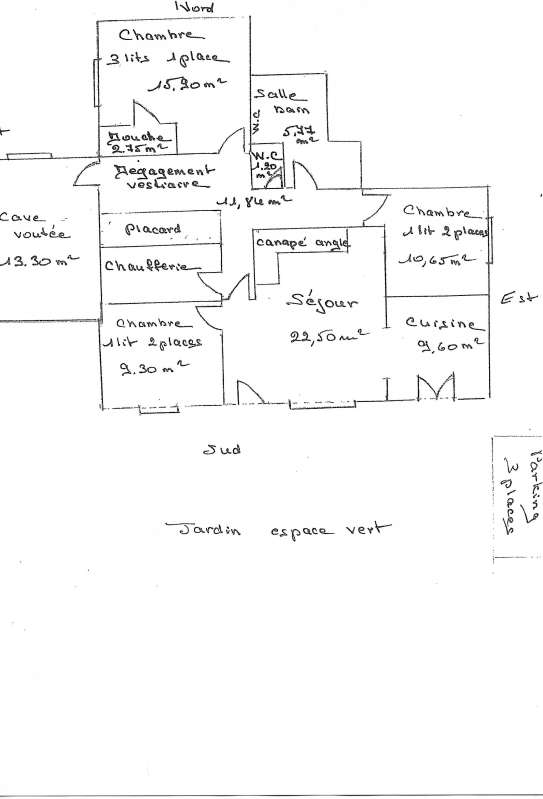 Nord
Chambre
3 lits 1place
15,20 m²
Salle
bain
5,77
m²
W.C
Douche
2.75 m²
W.C
1.20
m²
Dégagement
vestiaire
11,84 m²
Placard
Cave
voutée
13.30 m²
Chambre
1lit 2places
10,65 m²
canapé angle
Chaufferie
Séjour
22,50 m²
Est
Chambre
1lit 2places
9.30 m²
Cuisine
9,60 m²
Sud
Parking
3 places
Jardin espace vert